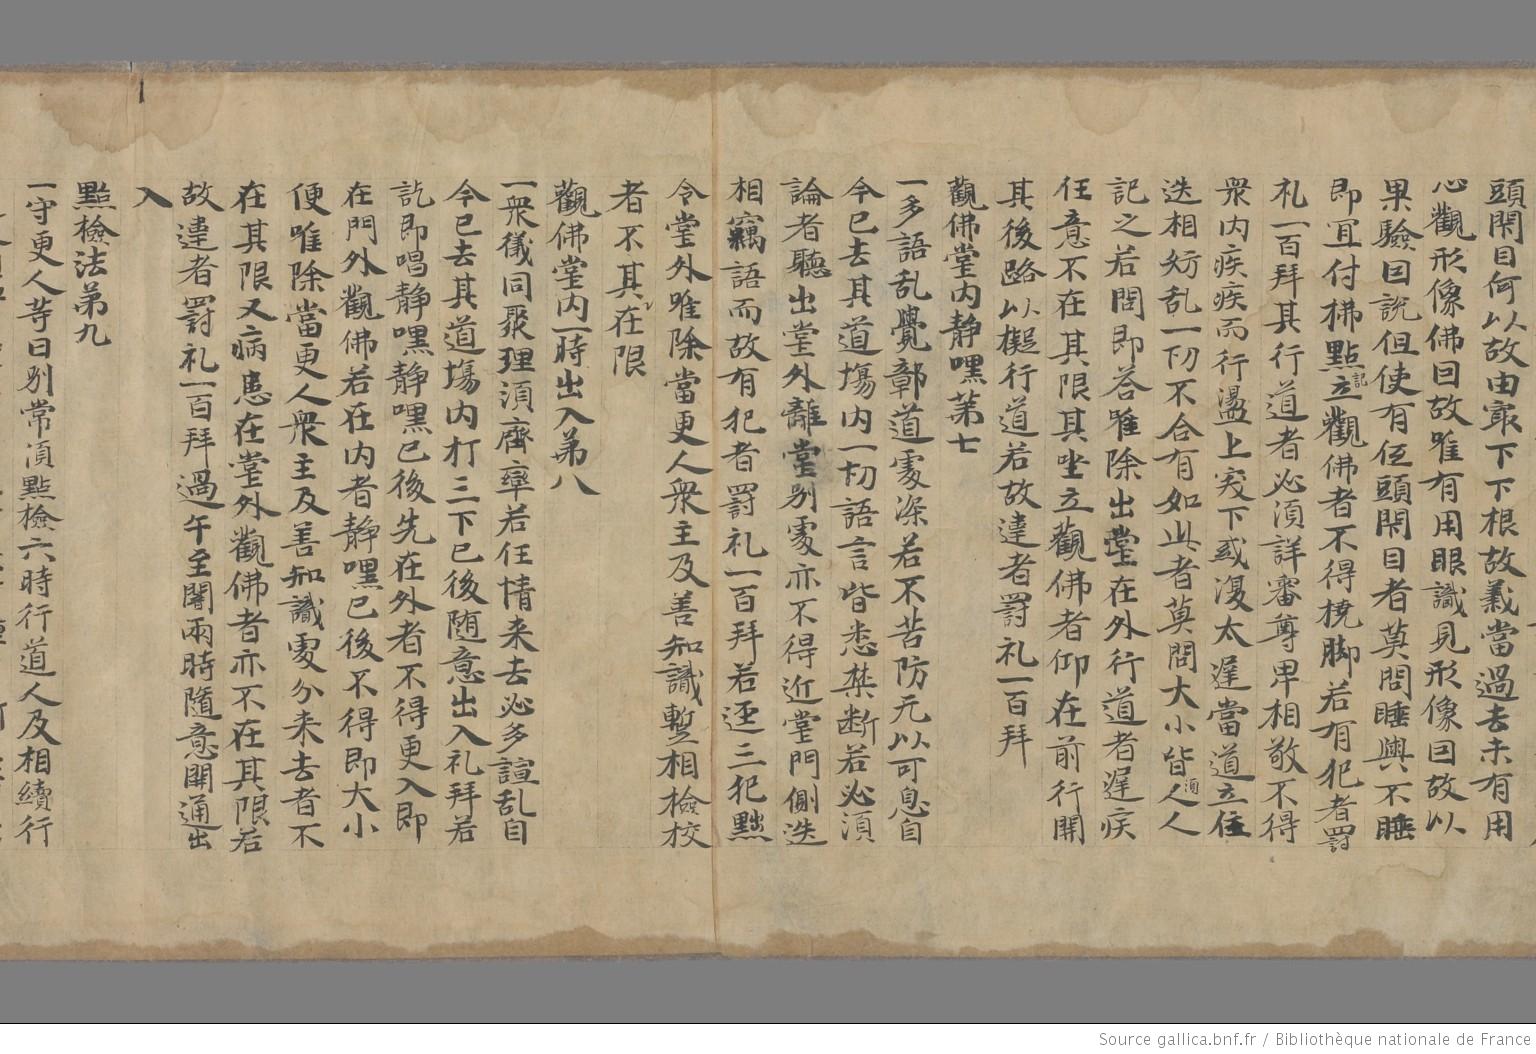 頭閇目何以故由寂下下根故義當過去未有用
心觀形像佛曰故唯有用眼識見形像曰故以
果驗曰說但使有伍頭閇目者莫問睡與不睡
即冝付拂點立記觀佛者不得橈脚若有犯者罸
礼一百拜其行道者必湏詳審尊卑相敬不得
衆内疾疾而行盪上突下或復太遅當道立住
迭相妨乱一切不合有如此者莫問大小皆湏人人
記之若問即荅唯除出堂在外行道者遅疾
任意不在其限其坐立觀佛者仰在前行開
其後路以擬行道若故違者罸礼一百拜
觀佛堂内静嘿苐七
一多語乱覺鄣道處深若不苦防元以可息自
今已去其道塲内一切語言皆悉禁断若必湏
論者聽出堂外離堂别處亦不得近堂門側迭
相竊語而故有犯者罸礼一百拜若逕三犯㸃
令堂外唯除當更人衆主及善知識蹔相檢校
者不其在限
觀佛堂内一時出入苐八
一衆儀同聚理湏齊舉若任情来去必多諠乱自
今已去其道塲内打三下已後随意出入礼拜若
訖即唱静嘿静嘿已後先在外者不得更入即
在門外觀佛若在内者静嘿已後不得即大小
便唯除當更人衆主及善知識處分来去者不
在其限又病患在堂外觀佛者亦不在其限若
故違者罸礼一百拜過午至闇兩時隨意開通出
入
點檢法苐九
一守更人等日别常湏點檢六時行道人及相續行